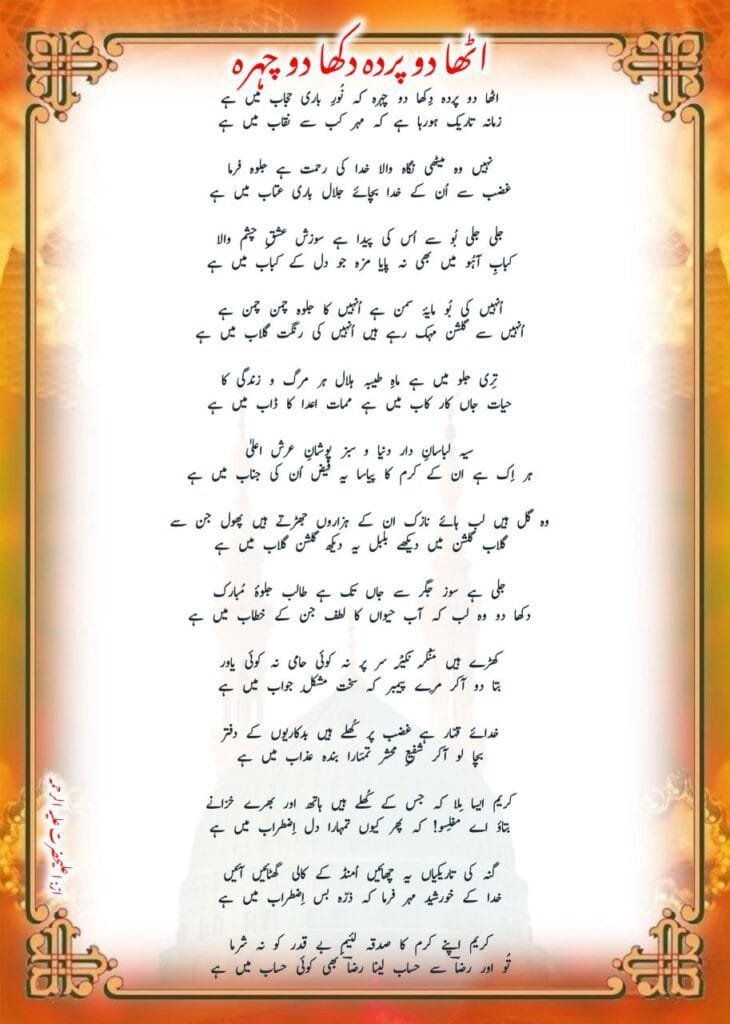 اٹھا دو پردہ دکھا دو چہرہ
اٹھا دو پردہ دِکھا دو چہرہ کہ نُورِ باری حجاب میں ہے
زمانہ تاریک ہورہا ہے کہ مہر کب سے نقاب میں ہے
نہیں وہ میٹھی نگاہ والا خدا کی رحمت ہے جلوہ فرما
غضب سے اُن کے خدا بچائے جلال باری عتاب میں ہے
جلی جلی بُو سے اُس کی پیدا ہے سوزش عشقِ چشم والا
کبابِ آہُو میں بھی نہ پایا مزہ جو دل کے کباب میں ہے
اُنہیں کی بُو مایۂ سمن ہے اُنہیں کا جلوہ چمن چمن ہے
اُنہیں سے گلشن مہک رہے ہیں اُنہیں کی رنگت گلاب میں ہے
تِری جلو میں ہے ماہِ طیبہ ہلال ہر مرگ و زندگی کا
حیات جاں کار کاب میں ہے ممات اعدا کا ڈاب میں ہے
سیہ لباسانِ دار دنیا و سبز پوشانِ عرش اعلیٰ
ہر اِک ہے ان کے کرم کا پیاسا یہ فیض اُن کی جناب میں ہے
وہ گل ہیں لب ہائے نازک ان کے ہزاروں جھڑتے ہیں پھول جن سے
گلاب گلشن میں دیکھے بلبل یہ دیکھ گلشن گلاب میں ہے
جلی ہے سوز جگر سے جاں تک ہے طالب جلوۂ مُبارک
دکھا دو وہ لب کہ آب حیواں کا لطف جن کے خطاب میں ہے
کھڑے ہیں منکر نکیر سر پر نہ کوئی حامی نہ کوئی یاور
بتا دو آکر مرے پیمبر کہ سخت مشکل جواب میں ہے
خدائے قہّار ہے غضب پر کُھلے ہیں بدکاریوں کے دفتر
بچا لو آکر شفیعِ محشر تمہارا بندہ عذاب میں ہے
کریم ایسا مِلا کہ جس کے کُھلے ہیں ہاتھ اور بھرے خزانے
بتاؤ اے مفلِسو! کہ پھر کیوں تمہارا دل اِضطراب میں ہے
گنہ کی تاریکیاں یہ چھائیں اُمنڈ کے کالی گھٹائیں آئیں
خدا کے خورشید مہر فرما کہ ذرّہ بس اِضطراب میں ہے
کریم اپنے کرم کا صدقہ لئیمِ بے قدر کو نہ شرما
تُو اور رضاؔ سے حساب لینا رضاؔ بھی کوئی حساب میں ہے
از: اعلیٰحضرت علیہ الرحمہ